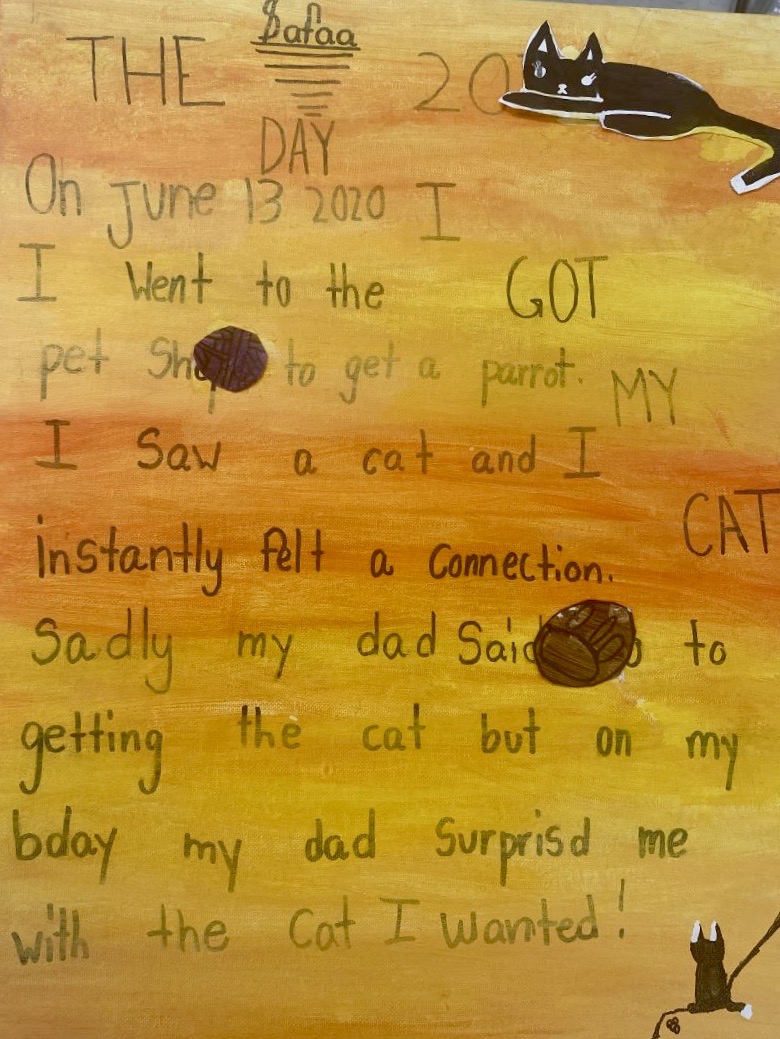 Safaa
THE 20
DAY
I
GOT
MY
CAT
On June 13 2020
I Went to the
pet Shop to get a parrot.
I Saw a cat and I
instantly felt a Connection.
Sadly my dad Said to
getting the cat but on my
bday my dad Surprisd me
with the Cat I wanted!